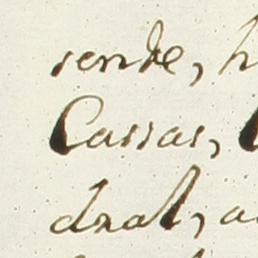 sende, h
Cassas,
dnal, a